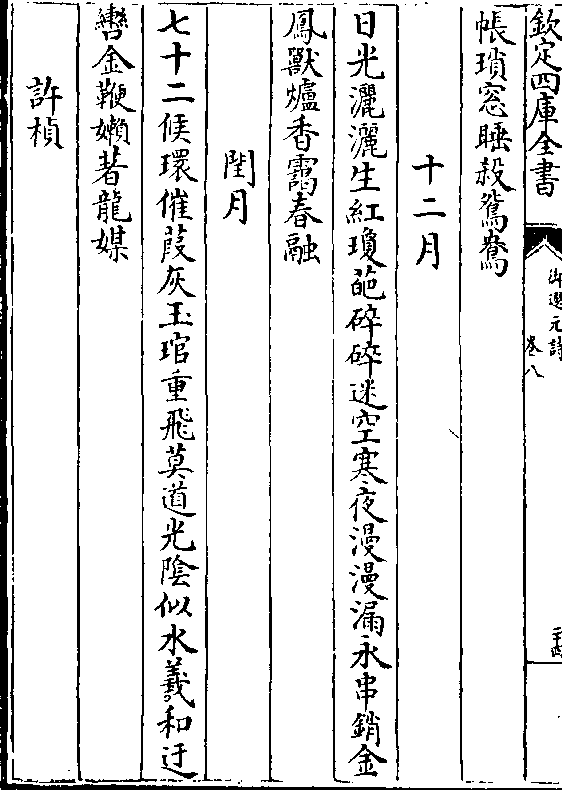 欽定四庫全書
御選元詩
卷八
二十四
帳瑣窓睡殺鴛鴦
十二月
日光灑灑生紅瓊葩碎碎迷空寒夜漫漫漏永串銷金
鳳獸爐香靄春融
閏月
七十二候環催葭灰玉琯重飛莫道光陰似水羲和迂
轡金鞭嬾著龍媒
許楨